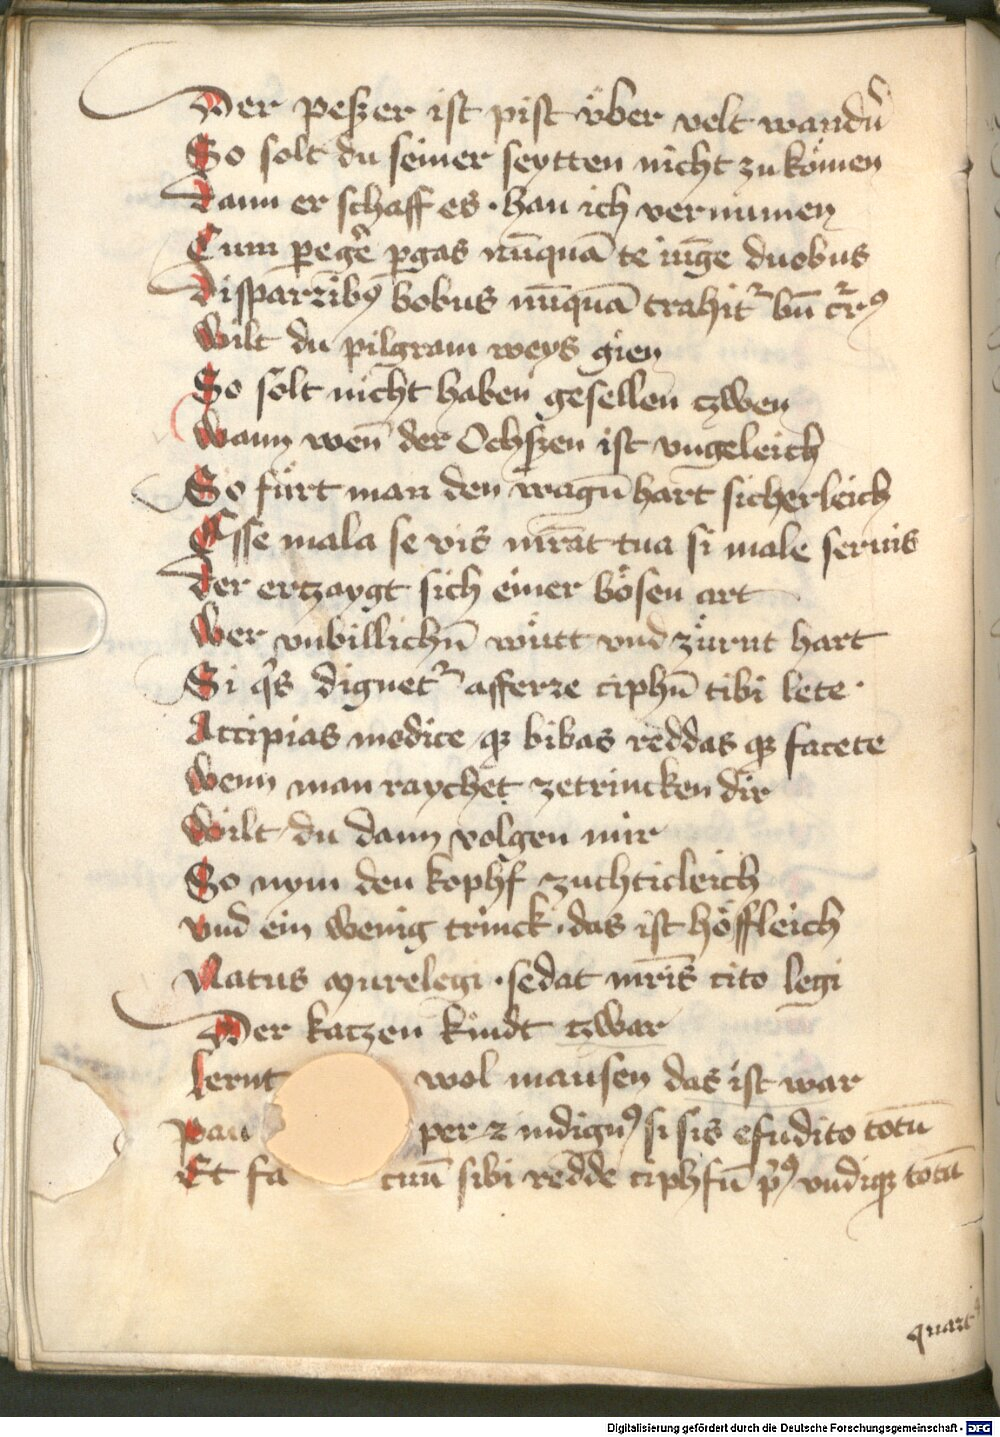 Der peſzer iſt piſt v̈ber velt wandn̄
So ſolt du ſeiner ſeytten nicht zu kömen
Dann er ſchaff es · han ich vernumen
Cum pegͤ pgas nūquā te iūge duobus
Diſparibꝰ bobus nūquā trahitᷣ bn̄ crꝰ
Wilt du pilgram weys gien
So ſolt nicht haben geſellen tzwen
Wann wen̄ der Ochſzen iſt vngeleich
So fürt man den wagn̄ hart ſicherleich
Eſſe mala ſe vis mr̄at tua ſi male ſeruis
Der ertzaygt ſich einer böſen art
Wer vnbillichn̄ wütt vnd zürnt hart
Si q̄s dignetᷣ afferre ciphū tibi lete ·
Accipias modice qꝫ bibas reddas qꝫ facete
Wenn man raychet zetrincken dir
Wilt du dann volgen mir
So nym den kophf zuchticleich
vnd ein wenig trinck · das iſt höffleich
Natus murelegi · ſedat mr̄is cito legi
Der katzen kindt tzwar
lernt wol mauſen das iſt war
Pau per ⁊ indignꝰ ſi ſis efudito totū
Et fa cuū ſibi redde ciphſū pꝰ vndiqꝫ totū
quartꝰ
Digitalisierung gefördert durch die Deutsche Forschungsgemeinschaft - DFG